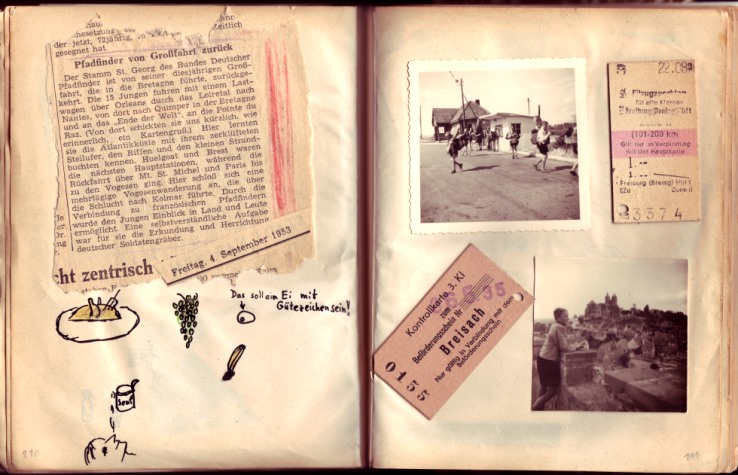 der jetzt, 72jährig,
gesegnet hat.
Pfadfinder von Großfahrt zurück
Der Stamm St. Georg des Bundes Deutscher
Pfadfinder ist von seiner diesjährigen Groß-
fahrt, die in die Bretagne führte, zurückge-
kehrt. Die 15 Jungen fuhren mit einem Last-
wagen über Orleans durch das Loiretal nach
Nantes, von dort nach Quimper in der Bretagne
und an das „Ende der Welt", an die Pointe du
Raz. (Von dort schickten sie uns kürzlich, wie
erinnerlich, einen Kartengruß.) Hier lernten
sie die Atlantikküste mit ihrem zerklüfteten
Steilufer, den Riffen und den kleinen Strand-
buchten kennen. Huelgoat und Brest waren
die nächsten Hauptstationen, während die
Rückfahrt über Mt. St. Michel und Paris bis
zu den Vogesen ging. Hier schloß sich eine
mehrtägige Vogesenwanderung an, die über
die Schlucht nach Kolmar führte. Durch die
Verbindung zu französischen Pfadfindern
wurde den Jungen Einblick in Land und Leute
ermöglicht. Eine selbstverständliche Aufgabe
war für sie die Erkundung und Herrichtung
deutscher Soldatengräber.
Freitag, 4. September 1953
cht zentrisch
Das soll ein Ei mit
Gütezeichen sein!
Senf
110
22.08
Eilzugzuschlag
für alle Klassen
Freiburg (Breisg) Hbf
101-200 km
Gilt nur in Verbindung
mit der Hauptkarte
1.--
Freiburg (Breisg) Hbf
Zone II
3374
Kontrollkarte 3. Kl
zum
Beförderungsschein Nr
Breisach
Nur gültig in Verbindung mit dem
Beförderungsschein
0155
111